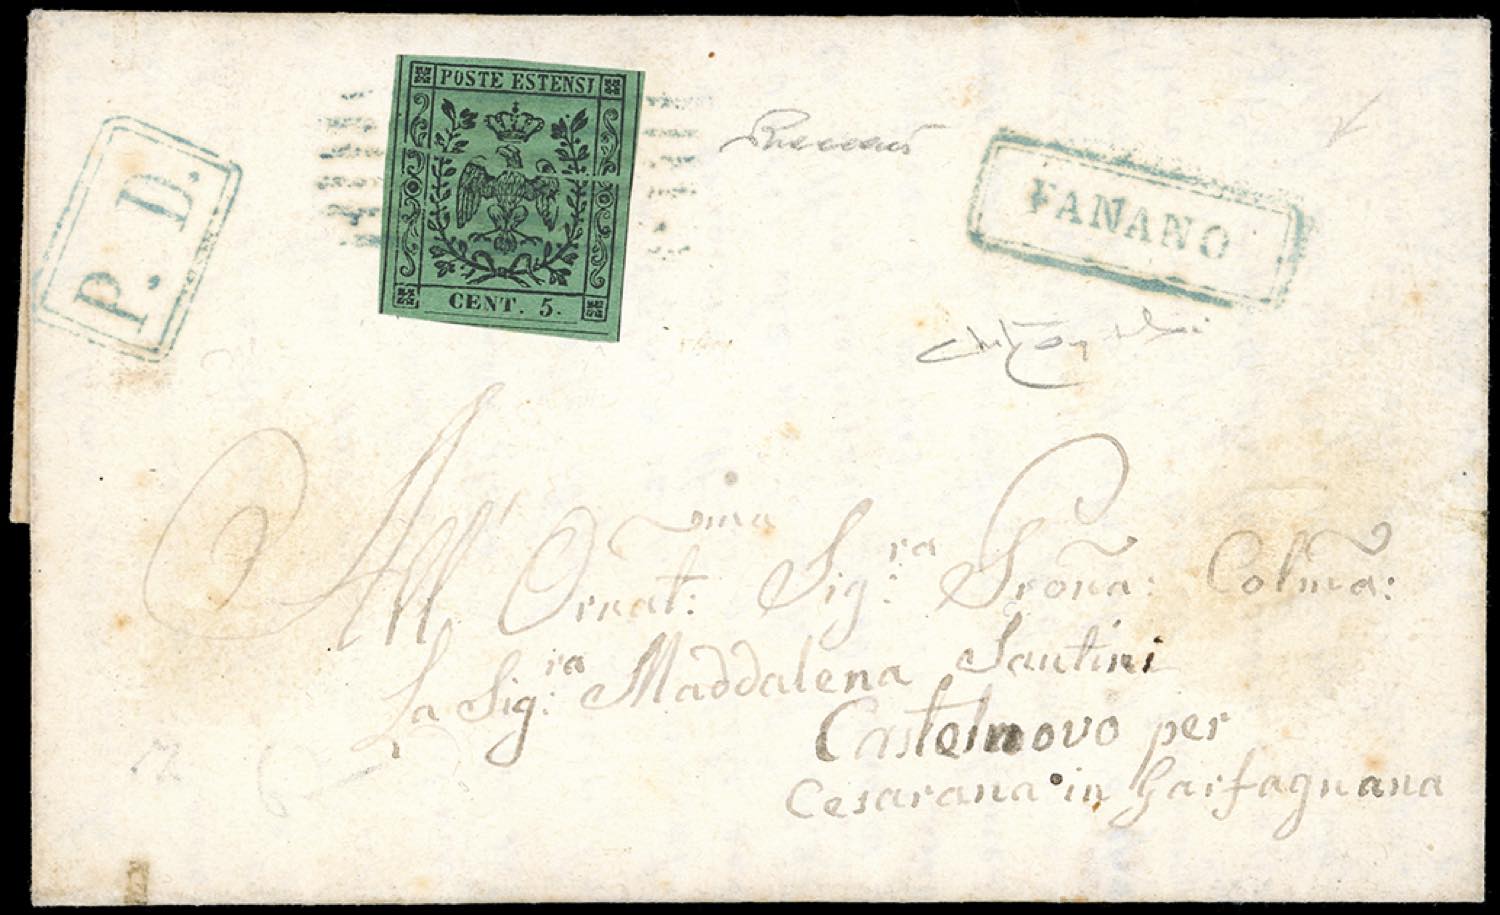 POSTE ESTENSI
CENT. 5.
P. D.
FANANO
All' Ornat:ma Sig:ra Proña: Colmã:
La Sig:ra Maddalena Santini
Castelnovo per
Cesarana in Garfagnana